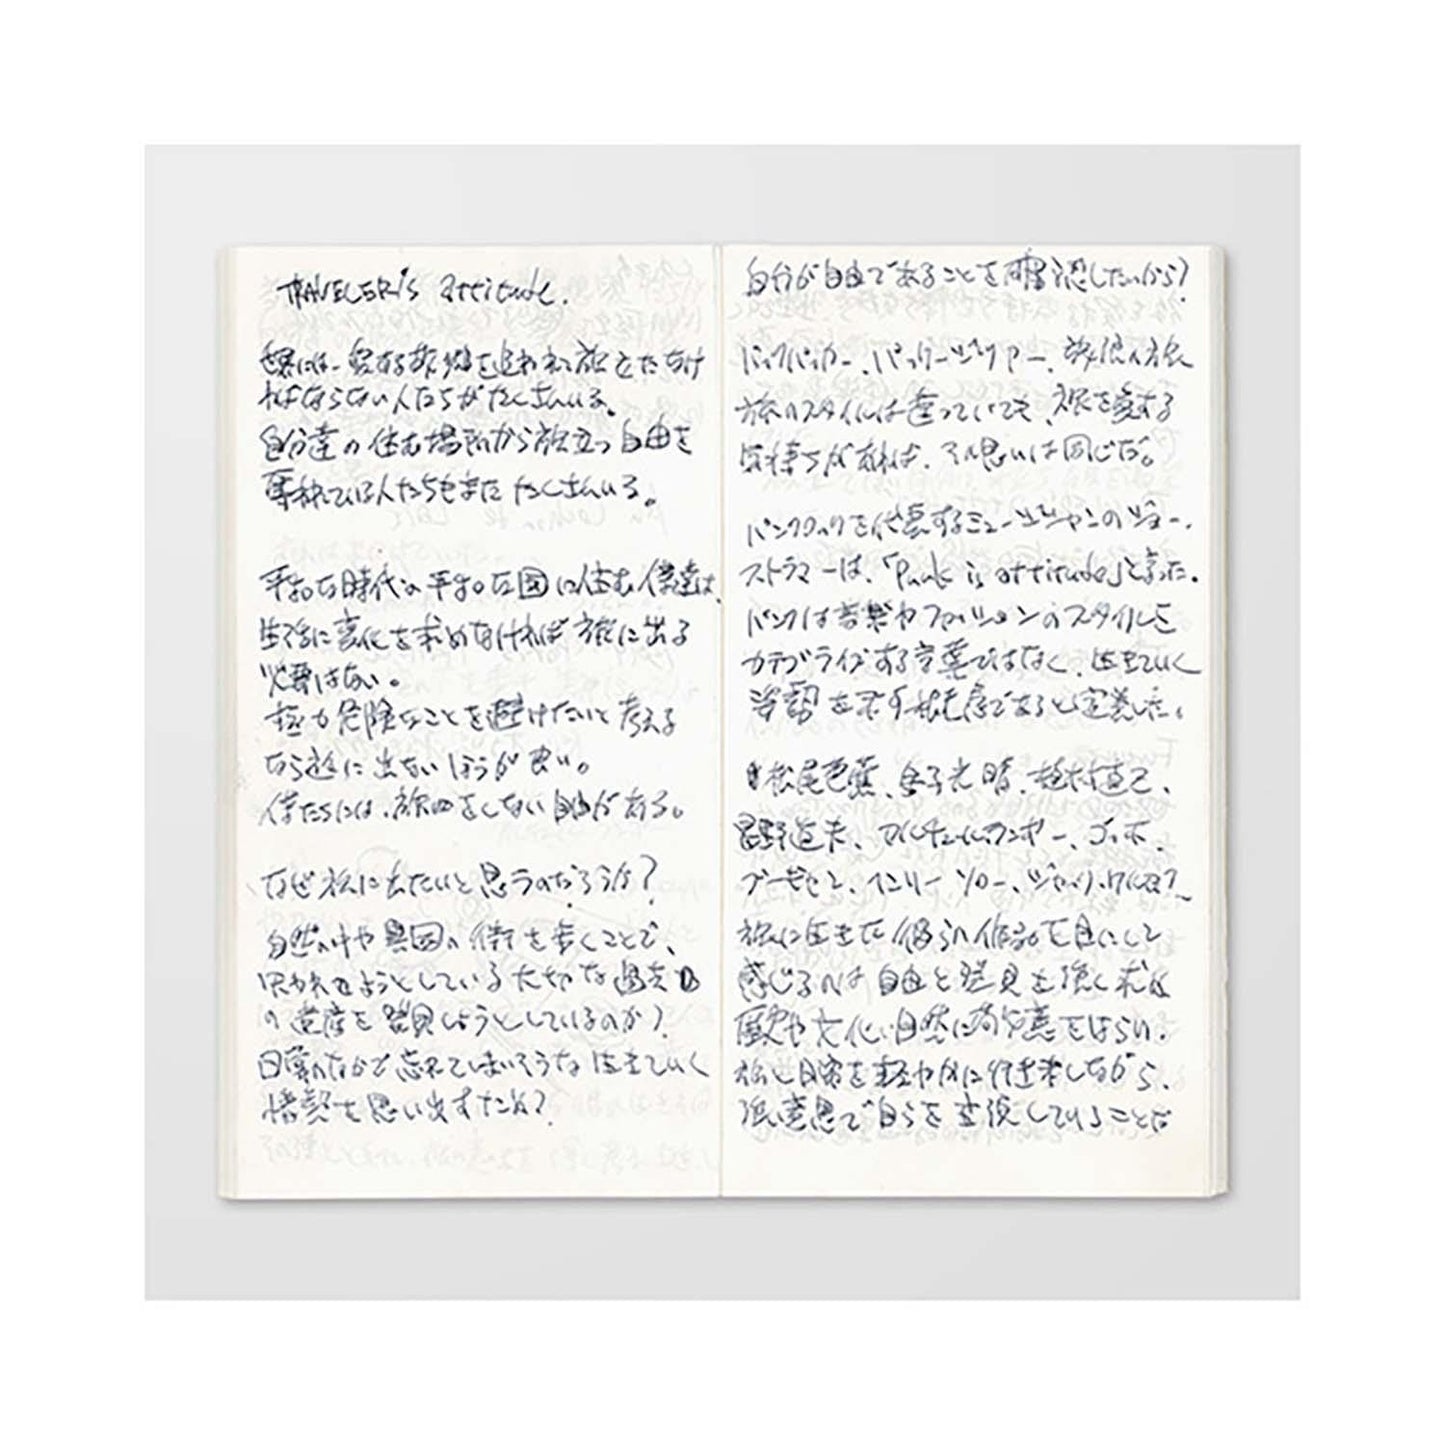 TRAVELER'S attitude.
世界には、愛する故郷を追われて旅立たなけ
ればならない人たちがたくさんいる。
自分達の住む場所から旅立つ自由を
奪われている人たちもまたたくさんいる。
平和な時代の平和な国に住む僕達は、
生活に変化を求めなければ旅に出る
必要はない。
極力危険なことを避けたいと考える
なら旅に出ないほうが良い。
僕たちには、旅をしない自由がある。
なぜ旅に出たいと思うのだろうか?
自然の中や異国の街を歩くことで、
失われようとしている大切な過去
の遺産を発見しようとしているのか?
日常のなかで忘れてしまいそうな生きていく
情熱を思い出すため?
自分が自由であることを確認したいから?
バックパッカー、パッケージツアー、放浪の旅
旅のスタイルは違っていても、旅を愛する
気持ちがあれば、その思いは同じだ。
パンクロックを代表するミュージシャンのジョー・
ストラマーは、「Punk is attitude」と言った。
パンクは音楽やファッションのスタイルを
カテゴライズする言葉ではなく、生きていく
姿勢を示す態度であると定義した。
松尾芭蕉、金子光晴、植村直己、
星野道夫、アルチュールランボー、ゴッホ、
ブーゼセン、ヘンリーソロー、ジャック
旅に生きた彼らの作品を目にして
感じるのは自由と発見を強く求め
歴史や文化、自然に敬意をはらい、
旅と日常を軽やかに行き来しながら、
強い意思で自らを していることだ